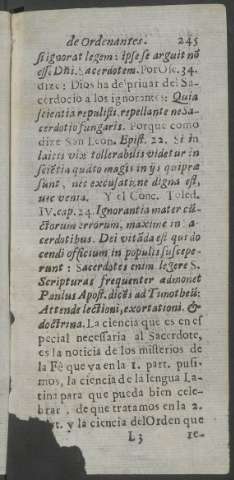 de Ordenantes. 245
si ignorat legem: ipse se arguit nō
esse Dñi. Sacerdotem. Por Ose. 34.
dize: Dios ha de privar del Sa-
cerdocio a los ignorantes: Quia
scientia repulisti. repellante ne Sa-
cerdotio fungaris. Porque como
dize San Leon. Epist. 22. Si in
laicis vix tollerabilis videtur in
sciētia quāto magis in ijs quipræ
sunt, nec excusatione digna est,
nec venia. Y el Conc. Toled.
IV. cap. 24. Ignorantia mater cū-
ctorum errorum, maxime in sa-
cerdotibus Dei vitāda est qui do
cendi officium in populis suscepe-
runt: Sacerdotes enim legere S.
Scripturas frequenter admonet
Paulus Apost. dicēs ad Timotheū:
Attende lectioni, exortationi. &
doctrina. La ciencia que es en es
pecial necessaria al Sacerdote,
es la noticia de los misterios de
la Fè que va en la 1. part. pusi-
mos, la ciencia de la lengua La-
tina para que pueda bien cele-
brar, de que tratamos en la 2.
rt. y la ciencia del Orden que
L3 re-